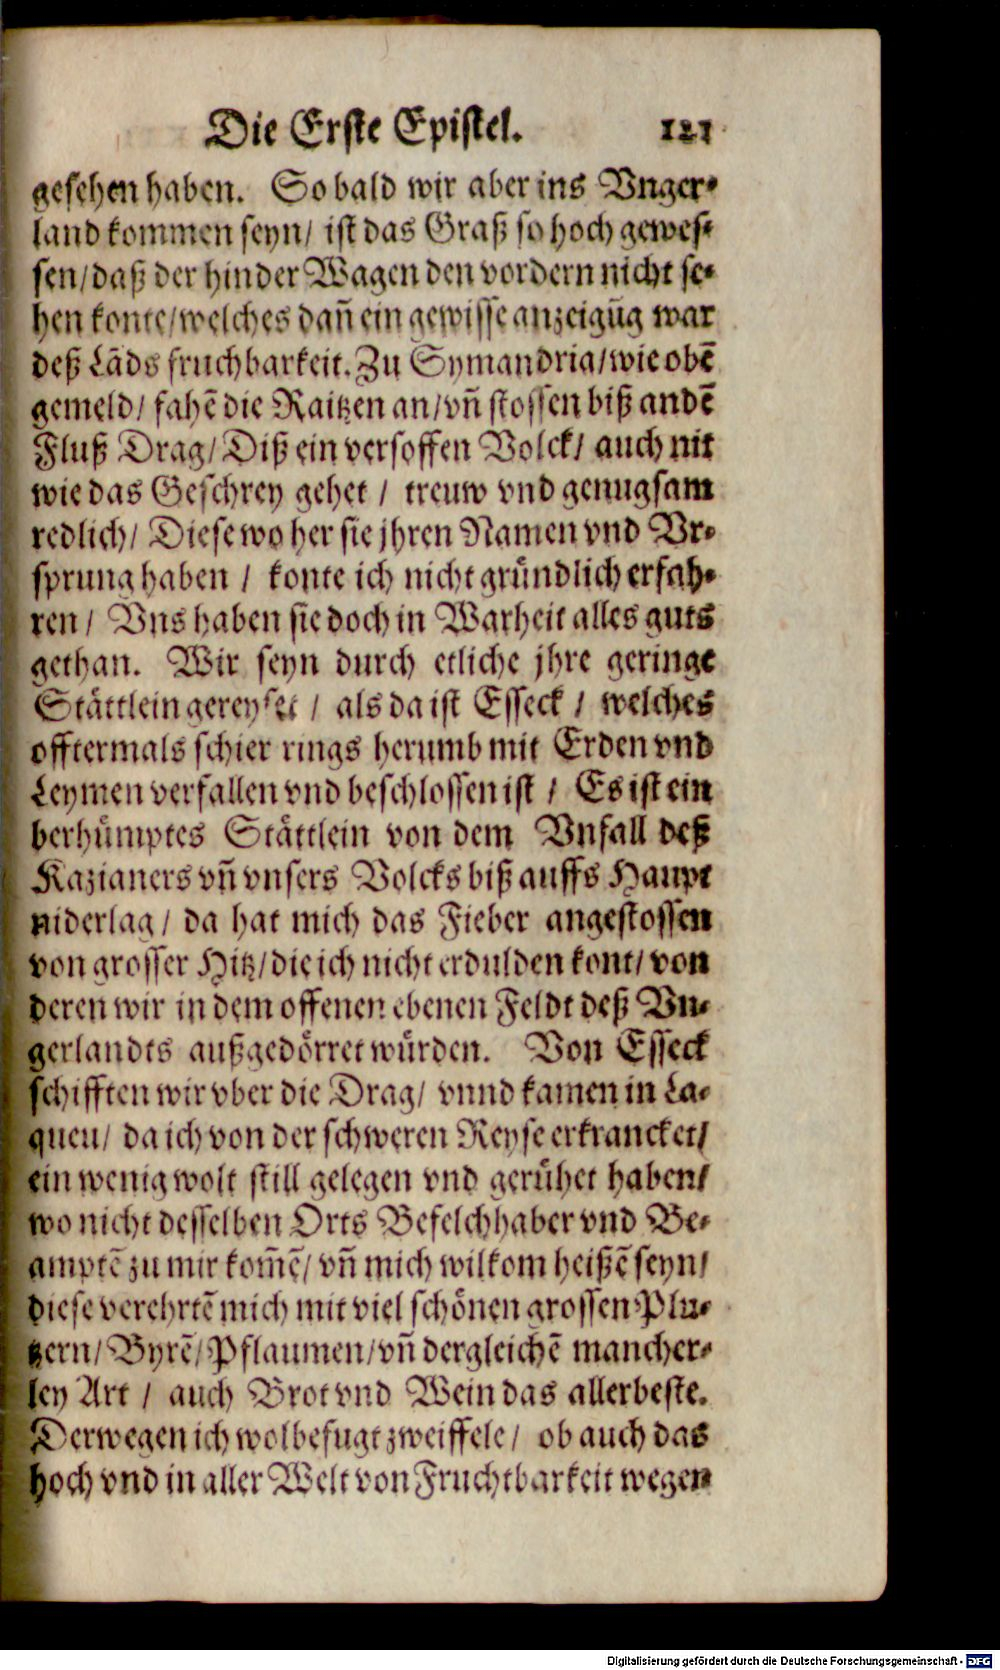 Die Erste Epistel. 121
gesehen haben. So bald wir aber ins Vnger⸗
land kommen seyn/ ist das Graß so hoch gewes⸗
sen/ daß der hinder Wagen den vordern nicht se⸗
hen konte/ welches dañ ein gewisse anzeigūg war
deß Lāds fruchbarkeit. Zu Symandria/ wie obē
gemeld/ fahē die Raitzen an/ vñ stossen biß an dē
Fluß Drag/ Diß ein versoffen Volck/ auch nit
wie das Geschrey gehet / treuw vnd genugsam
redlich/ Diese wo her sie jhren Namen vnd Vr⸗
sprung haben / konte ich nicht gründlich erfah⸗
ren / Vns haben sie doch in Warheit alles guts
gethan. Wir seyn durch etliche jhre geringe
Stättlein gereyset / als da ist Esseck / welches
offtermals schier rings herumb mit Erden vnd
Leymen verfallen vnd beschlossen ist / Es ist ein
berhümptes Stättlein von dem Vnfall deß
Kazianers vñ vnsers Volcks biß auffs Haupt
niderlag / da hat mich das Fieber angestossen
von grosser Hitz/ die ich nicht erdulden kont/ von
deren wir in dem offenen ebenen Feldt deß Vn⸗
gerlandts außgedörret würden. Von Esseck
schifften wir vber die Drag/ vnnd kamen in La⸗
queu/ da ich von der schweren Reyse erkrancket/
ein wenig wolt still gelegen vnd gerühet haben/
wo nicht desselben Orts Befelchhaber vnd Be⸗
amptē zu mir kom̄ē/ vñ mich wilkom heißē seyn/
diese verehrtē mich mit viel schönen grossen Plu⸗
tzern/ Byrē/ Pflaumen/ vñ dergleichē mancher⸗
ley Art / auch Brot vnd Wein das allerbeste.
Derwegen ich wolbefugt zweiffele / ob auch das
hoch vnd in aller Welt von Fruchtbarkeit wegen
Digitalisierung gefördert durch die Deutsche Forschungsgemeinschaft - DFG